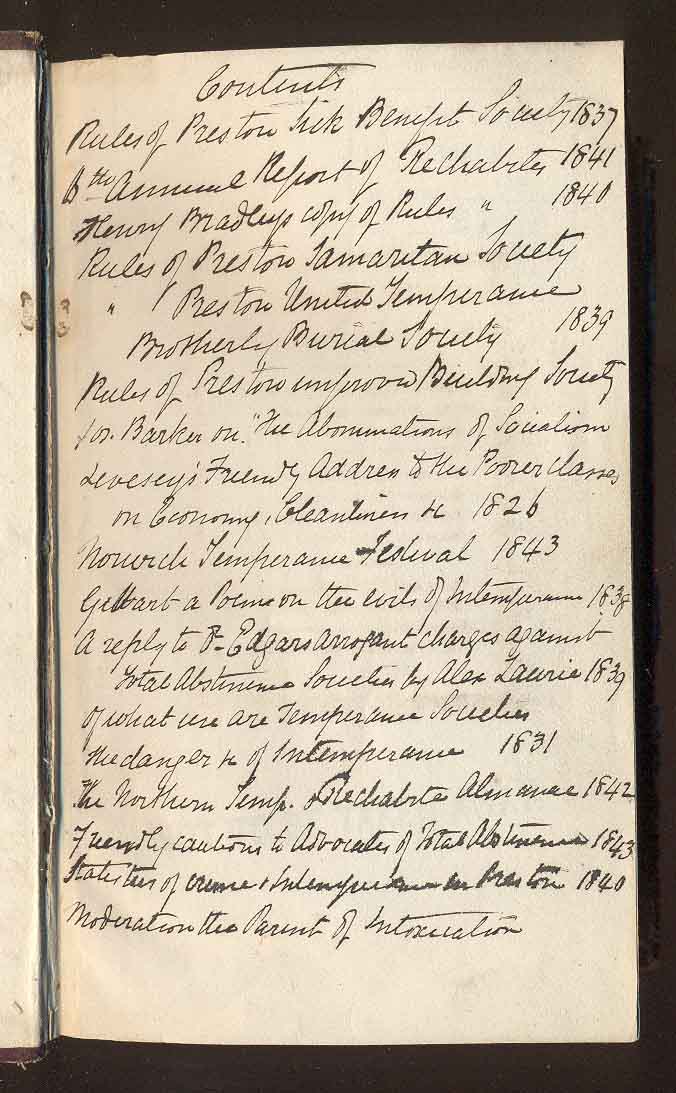 Contents
Rules of Preston Sick Benefit Society 1837
6th Annual Report of Rechabites 1841
Henry Bradleys copy of Rules " 1840
Rules of Preston Samaritan Society
" Preston United Temperance
Brotherly Burial Society 1839
Rules of Preston improved Building Society
Jos. Barker on "The Abominations of Socialism
Livesey's Friendly Address to the Poorer classes
on Economy, Cleanliness &c 1826
Norwich Temperance Festival 1843
a Poem on the evils of Intemperance 1838
A reply to Dr Edgars arrogant charges against
Total Abstinence Societies by Alex Lawrie 1839
Of what use are Temperance Societies
The danger &c of Intemperance 1831
The Northern Temp. & Rechabite Almanac 1842
Friendly cautions to Advocates of Total Abstinence 1843
Statistics of crime & Intemperance in Preston 1840
Moderation the Parent of Intoxication